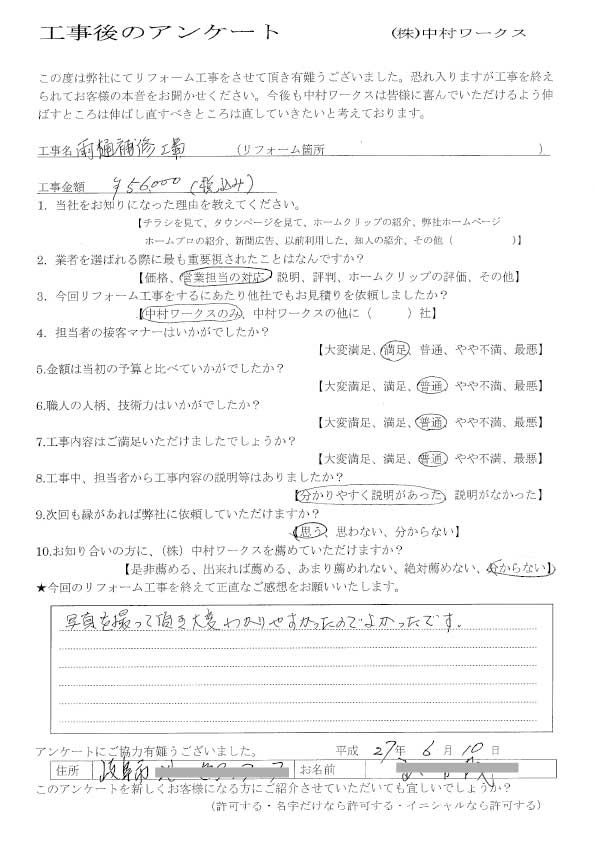 工事後のアンケート (株)中村ワークス
この度は弊社にてリフォーム工事をさせて頂き有難うございました。恐れ入りますが工事を終え
られてお客様の本音をお聞かせください。今後も中村ワークスは皆様に喜んでいただけるよう伸
ばすところは伸ばし直すべきところは直していきたいと考えております。
工事名 雨樋補修工事 (リフォーム箇所 )
工事金額 ¥56,000(税込み)
1. 当社をお知りになった理由を教えてください。
【チラシを見て、タウンページを見て、ホームクリップの紹介、弊社ホームページ
ホームプロの紹介、新聞広告、以前利用した、知人の紹介、その他( )】
2. 業者を選ばれる際に最も重要視されたことはなんですか?
【価格、営業担当の対応、説明、評判、ホームクリップの評価、その他】
3. 今回リフォーム工事をするにあたり他社でもお見積りを依頼しましたか?
【中村ワークスのみ、中村ワークスの他に( )社】
4. 担当者の接客マナーはいかがでしたか?
【大変満足、満足、普通、やや不満、最悪】
5.金額は当初の予算と比べていかがでしたか?
【大変満足、満足、普通、やや不満、最悪】
6.職人の人柄、技術力はいかがでしたか?
【大変満足、満足、普通、やや不満、最悪】
7.工事内容はご満足いただけましたでしょうか?
【大変満足、満足、普通、やや不満、最悪】
8.工事中、担当者から工事内容の説明等はありましたか?
【分かりやすく説明があった、説明がなかった】
9.次回も縁があれば弊社に依頼していただけますか?
【思う、思わない、分からない】
10.お知り合いの方に、(株)中村ワークスを薦めていただけますか?
【是非薦める、出来れば薦める、あまり薦めれない、絶対薦めない、分からない】
★今回のリフォーム工事を終えて正直なご感想をお願いいたします。
写真を撮って頂き大変わかりやすかったのでよかったです。
アンケートにご協力有難うございました。 平成 27年 6月 10日
住所 岐阜市 お名前
このアンケートを新しくお客様になる方にご紹介させていただいても宜しいでしょうか?
(許可する・名字だけなら許可する・イニシャルなら許可する)